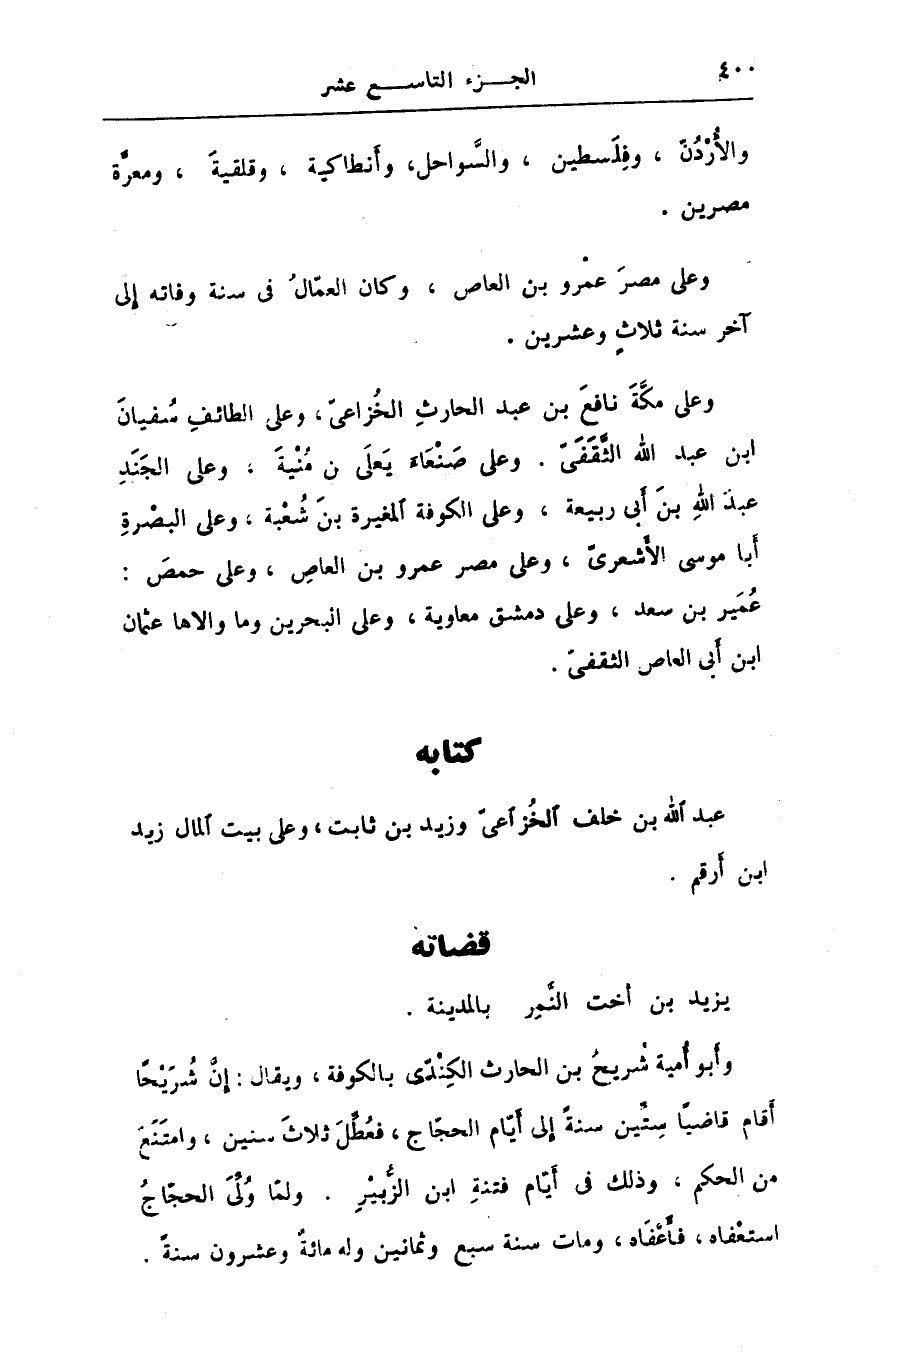 ٤٠٠
الجزء التاسع عشر
والأُرْدُنّ ، وفِلَسطين ، والسَّواحل، وأَنطاكية ، وقلقيةَ ، ومعرَّة
مصرين .
وعلى مصرَ عمْرو بن العاص ، وكان العمّالُ فى سنة وفاته إلى
آخر سنة ثلاثٍ وعشرين .
وعلى مكَّةَ نافعَ بن عبد الحارثِ الخُزاعىّ، وعلى الطائفِ سُفيانَ
ابن عبد الله الثَّقَفَىّ . وعلى صَنْعَاءَ يَعلَى ن مُنْيةَ ، وعلى الجَنَدِ
عبدَ اللهِ بنَ أَبى ربيعة ، وعلى الكوفة المغيرة بنَ شُعْبة ، وعلى البصْرةِ
أَبا موسى الأَشعرىّ ، وعلى مصر عمرو بن العاصِ ، وعلى حمصَ :
عُمَير بن سعد ، وعلى دمشق معاوية ، وعلى البحرين وما والاها عثمان
ابن أَبى العاص الثقفىّ .
كتابه
عبد الله بن خلف الخُزاعىّ وزيد بن ثابت، وعلى بيت المال زيد
ابن أَرقم .
قضاته
يزيد بن أخت النَّمِر بالمدينة .
وأَبو أُمية شُريحُ بن الحارث الكِنْدّى بالكوفة ، ويقال : إنَّ شُرَيْحًا
أَقام قاضيًا سِتِّين سنةً إلى أَيّام الحجّاج ، فعُطِّلَ ثلاثَ سنين ، وامتَنَعَ
من الحكم ، وذلك فى أَيّام فتنةِ ابن الزُّبيْرِ . ولمّا وُلِّىَ الحجّاجُ
استعْفاه ، فأَعْفَاه ، ومات سنة سبع وثمانين وله مائةٌ وعشرون سنةً .